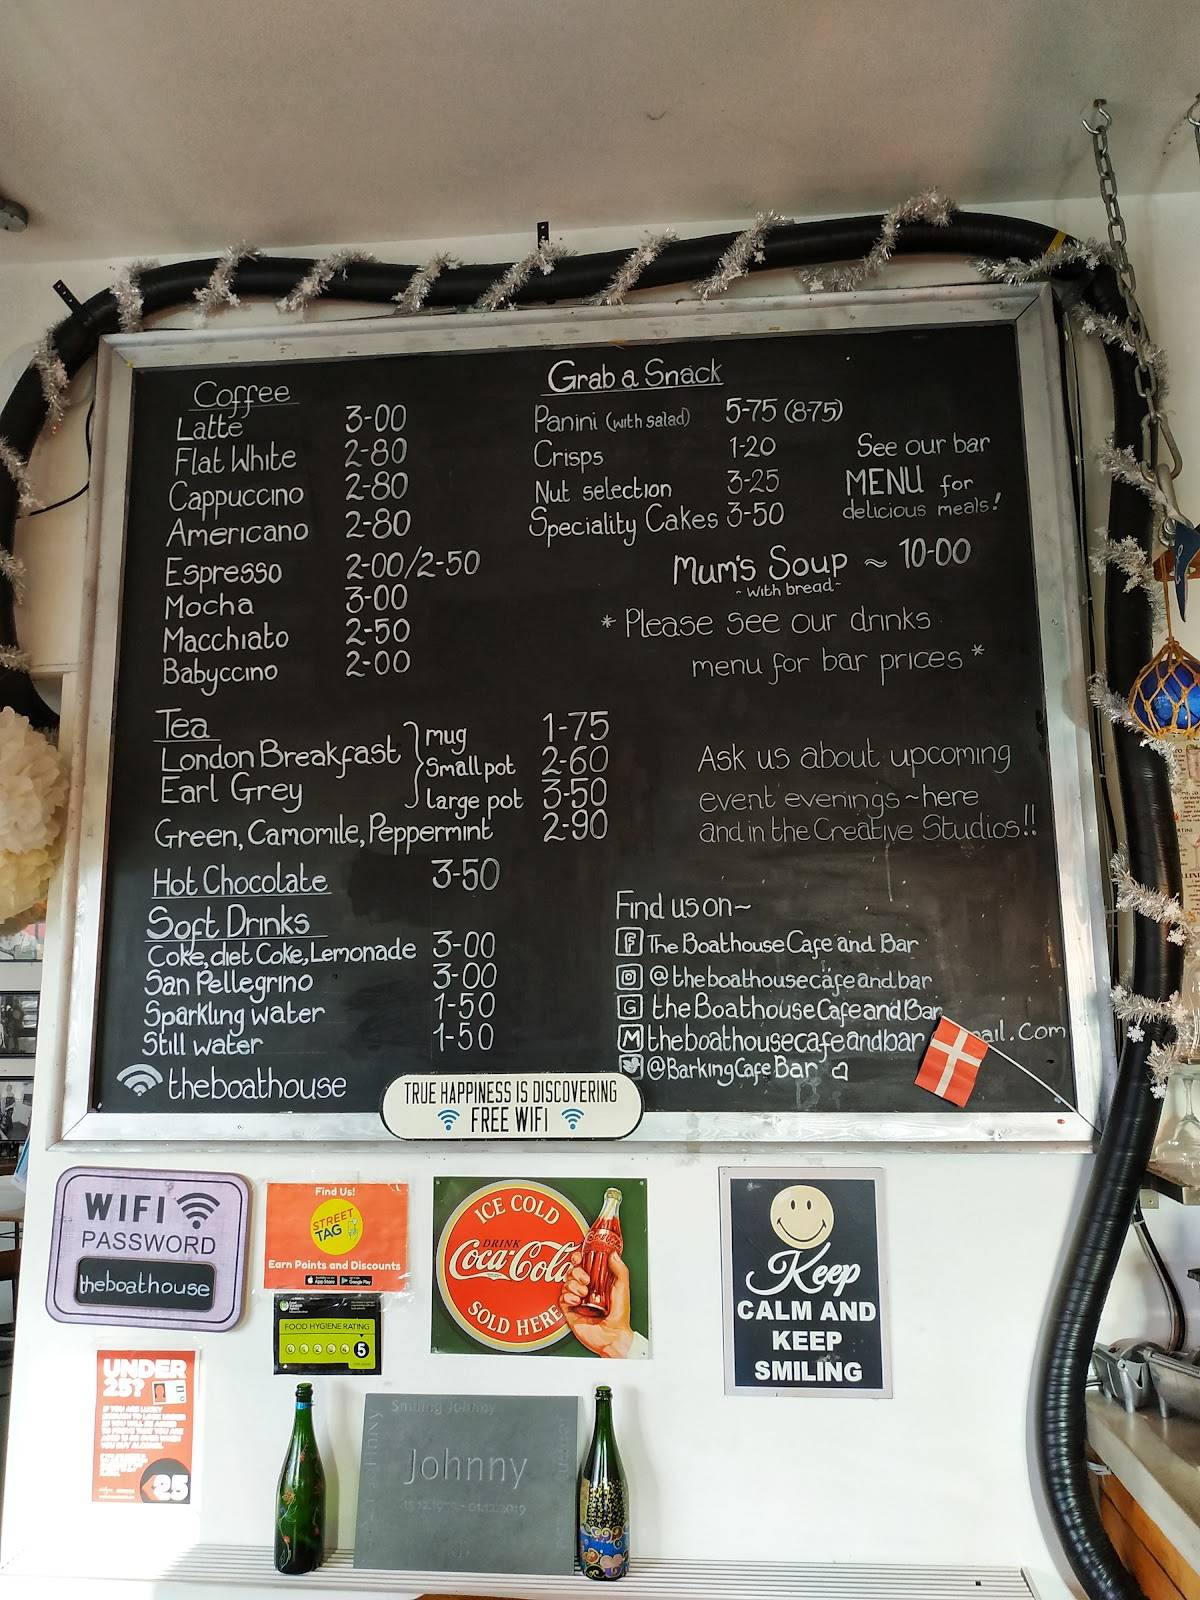 Coffee
Latte 3-00
Flat White 2-80
Cappuccino 2-80
Americano 2-80
Espresso 2-00/2-50
Mocha 3-00
Macchiato 2-50
Babyccino 2-00
Tea
London Breakfast
Earl Grey
mug 1-75
Small pot 2-60
large pot 3-50
Green, Camomile, Peppermint 2-90
Hot Chocolate 3-50
Soft Drinks
Coke, diet Coke, Lemonade 3-00
San Pellegrino 3-00
Sparkling water 1-50
Still water 1-50
theboathouse
Grab a Snack
Panini (with salad) 5-75 (8-75)
Crisps 1-20
Nut selection 3-25
Speciality Cakes 3-50
See our bar
MENU for
delicious meals!
Mum's Soup ~ 10-00
- with bread -
* Please see our drinks
menu for bar prices *
Ask us about upcoming
event evenings ~ here
and in the Creative Studios!!
Find us on ~
The Boathouse Cafe and Bar
@theboathousecafeandbar
G the Boathouse Cafe and Bar
M theboathousecafeandbar ail.com
@BarkingCafeBar
TRUE HAPPINESS IS DISCOVERING
FREE WIFI
WIFI
PASSWORD
theboathouse
Find Us!
STREET
TAG
Earn Points and Discounts
App Store Google Play
FOOD HYGIENE RATING
0 1 2 3 4 5
ICE COLD
DRINK
Coca-Cola
SOLD HERE
Keep
CALM AND
KEEP
SMILING
UNDER
25?
IF YOU ARE LUCKY
ENOUGH TO LOOK UNDER
25 YOU WILL BE ASKED
TO PROVE THAT YOU ARE
AGED 18 OR OVER WHEN
YOU BUY ALCOHOL
<25
Smiling Johnny
Johnny